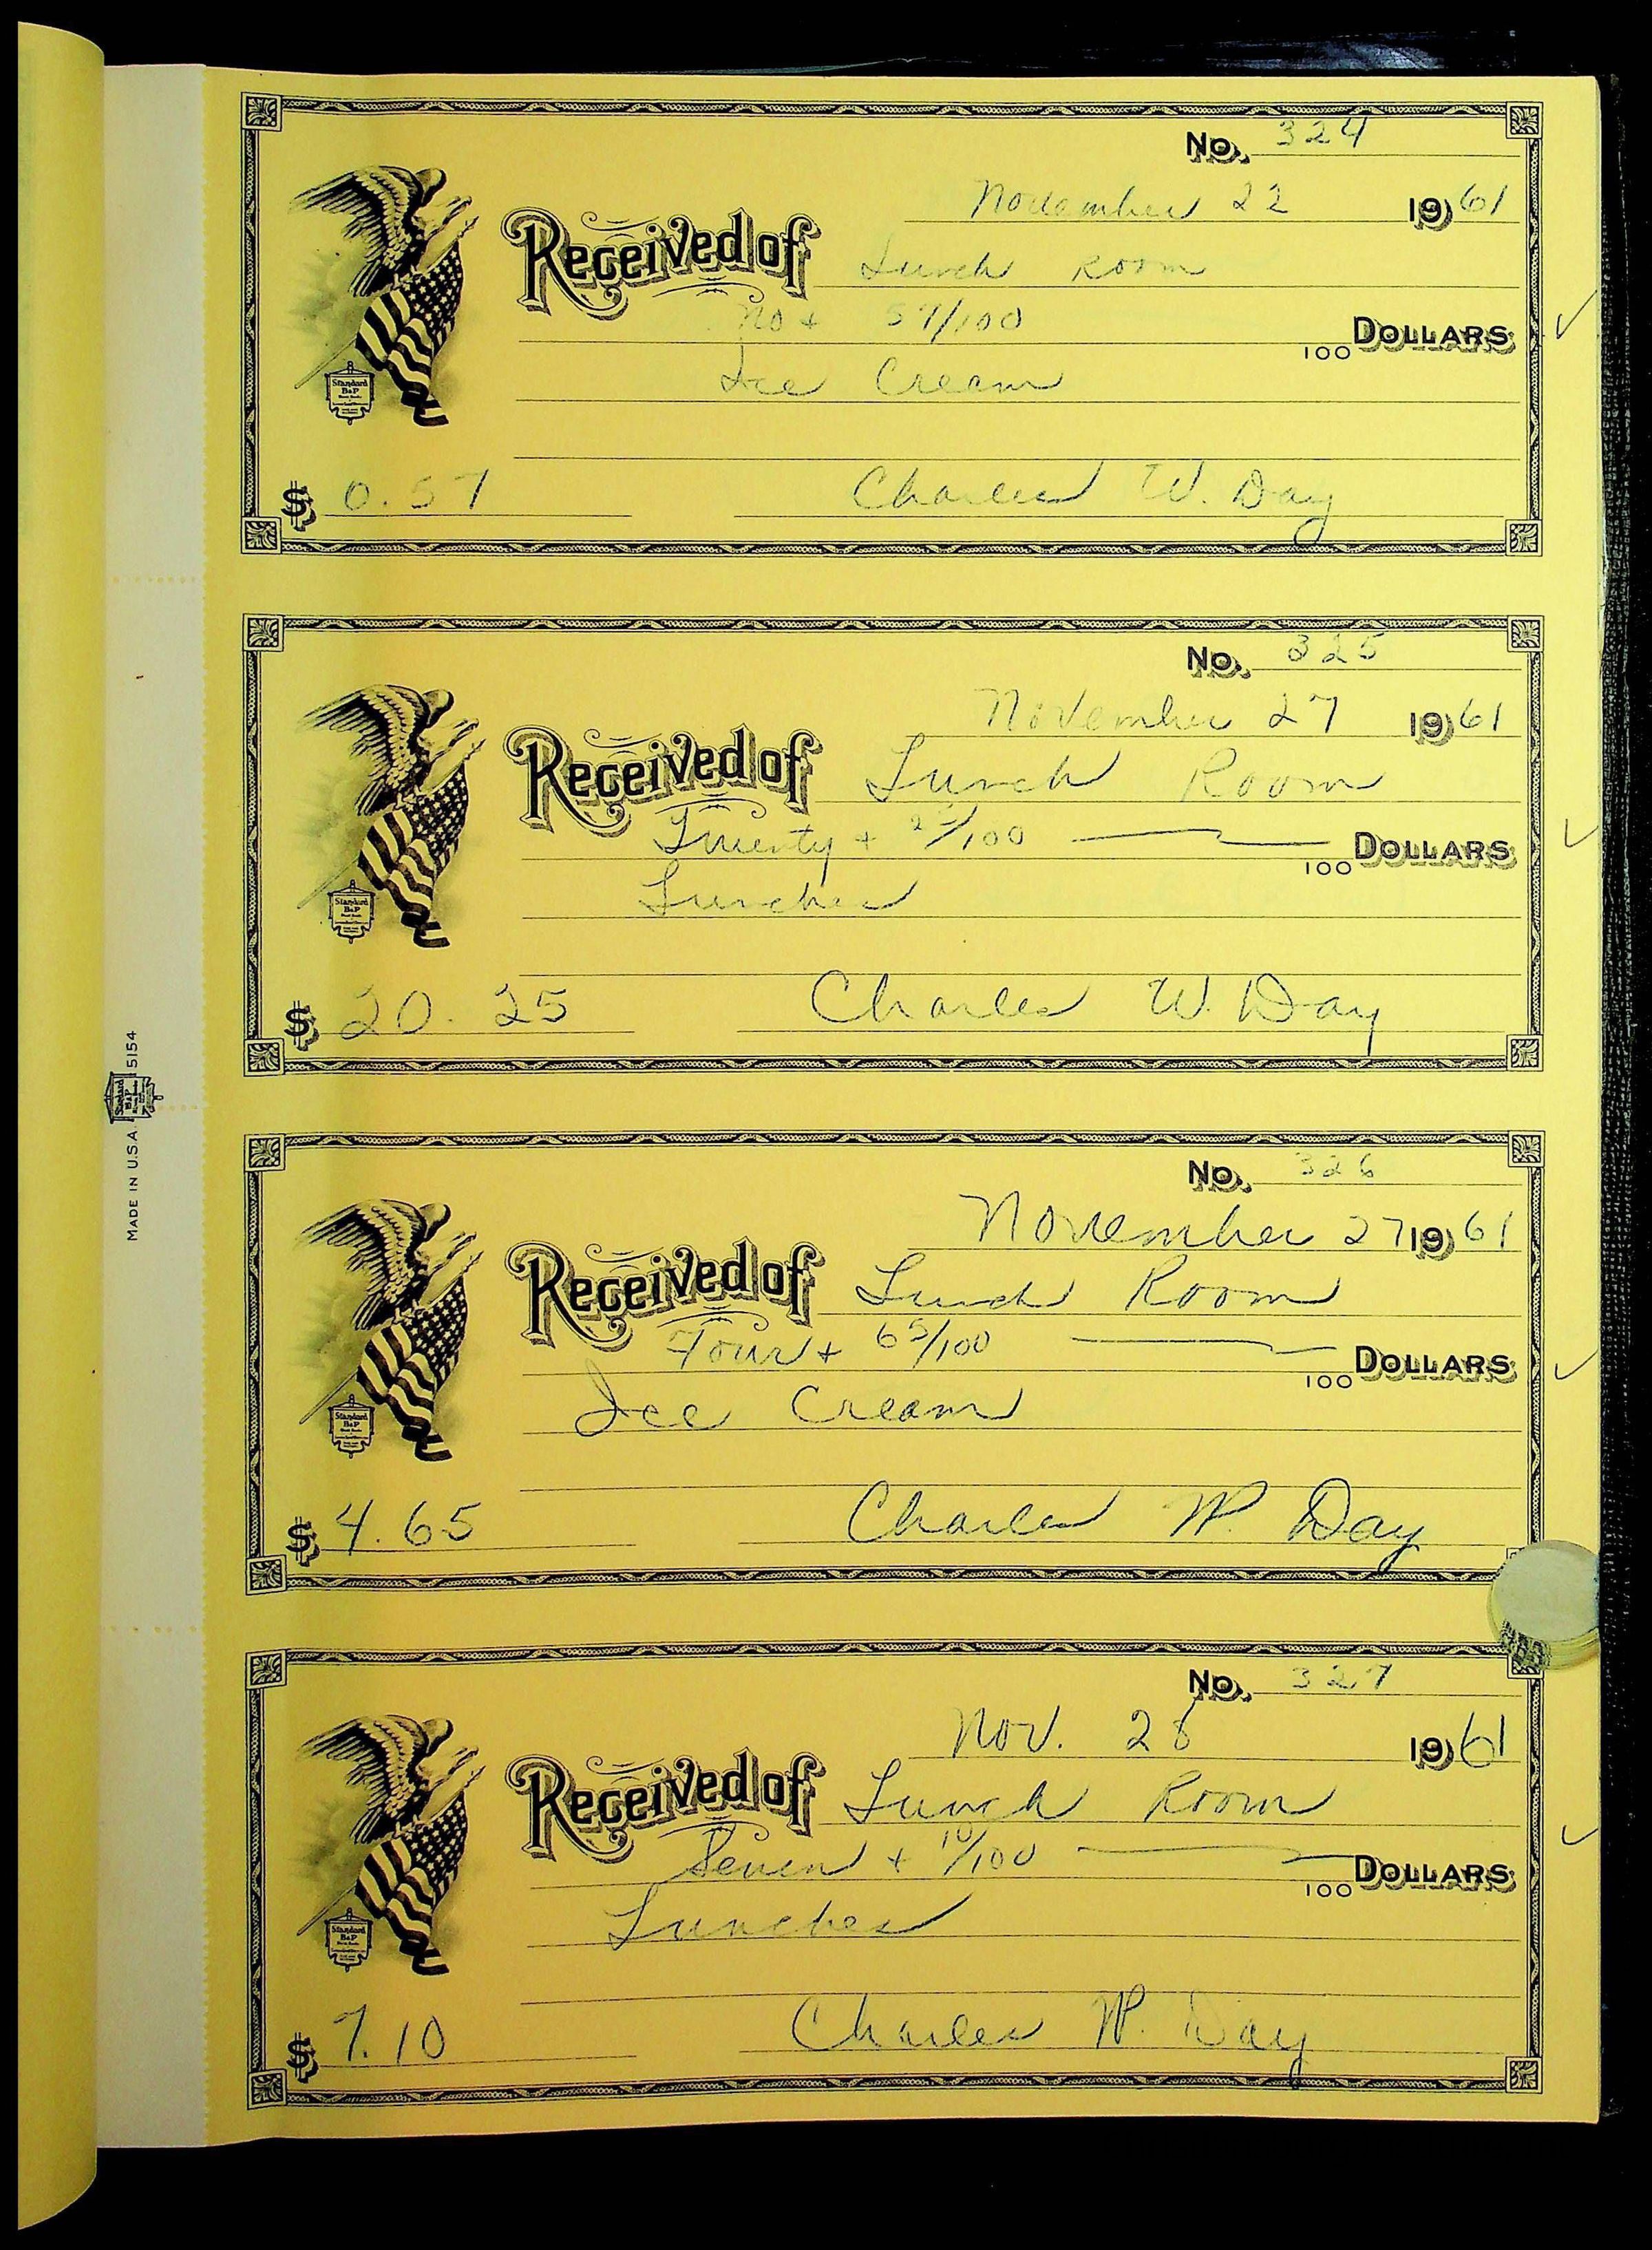 No. 324
November 22 1961
Received of Lunch Room
No + 57/100 100 DOLLARS
Ice Cream
$ 0.57 Charles W. Day
Standard B&P
No. 325
November 27 1961
Received of Lunch Room
Twenty + 25/100 100 DOLLARS
Lunches
$ 20.25 Charles W. Day
Standard B&P
No. 326
November 27 1961
Received of Lunch Room
Four + 65/100 100 DOLLARS
Ice Cream
$ 4.65 Charles W. Day
Standard B&P
No. 327
Nov. 28 1961
Received of Lunch Room
Seven + 10/100 100 DOLLARS
Lunches
$ 7.10 Charles W. Day
Standard B&P
MADE IN U.S.A. Standard B&P 55154